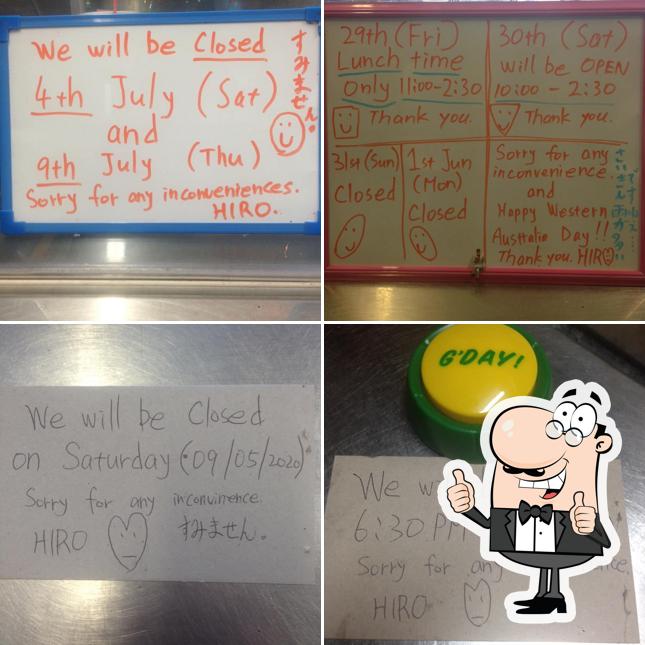 We will be Closed
4th July (Sat)
and
9th July (Thu)
Sorry for any inconveniences.
HIRO.
すみません。
29th (Fri)
Lunch time
Only 11:00-2:30
Thank you.
30th (Sat)
will be OPEN
10:00 - 2:30
Thank you.
31st (Sun)
Closed
1st Jun
(Mon)
Closed
Sorry for any
inconvenience.
and
Happy Western
Australia Day!!
Thank you. HIRO
We will be Closed
on Saturday (09/05/2020)
Sorry for any inconvinience.
HIRO
すみません。
G'DAY!
We
6:30 PM
Sorry for any
HIRO